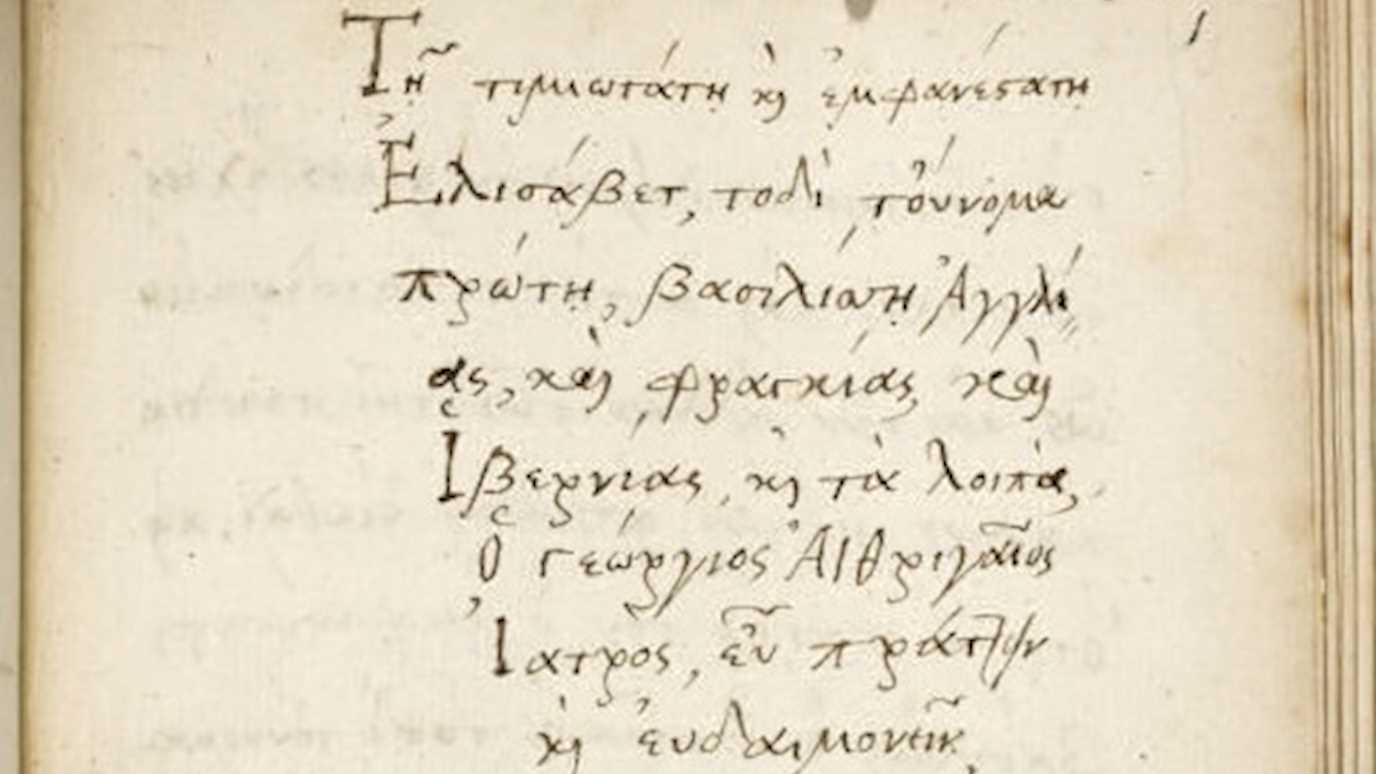 Τῇ τιμιωτάτῃ ϗ ἐμφανεϛάτῃ
Ἐλισάβετ, τοδὶ τοὔνομα
πρώτῃ, βασιλίσσῃ Ἀγγλί
ας, καὶ φραγκίας καὶ
Ἱβερνίας, ϗ τὰ λοιπὰ,
ὁ Γεώργιος Ἀιθριγαῖος
Ἰατρὸς, εὖ πράττειν
ϗ ἐυδαιμονεῖν,